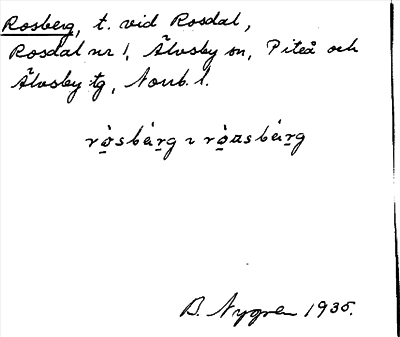 Rosberg, t. vid Rosdal,
Rosdal nr 1, Älvsby sn, Piteå och
Älvsby tg, Norrb. l.
rò̱sbár̲g ~ rò̱asbár̲g
B. Nygren 1935.